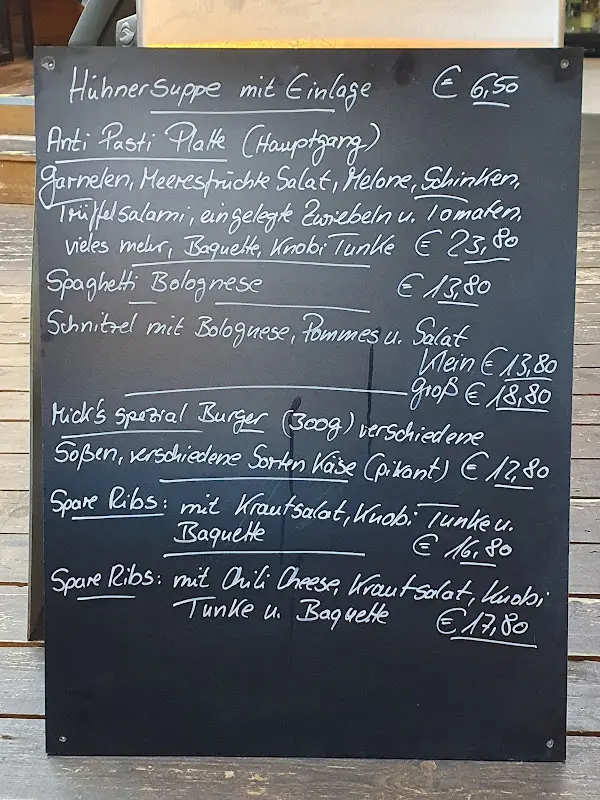 Hühnersuppe mit Einlage € 6,50
Anti Pasti Platte (Hauptgang)
Garnelen, Meeresfrüchte Salat, Melone, Schinken,
Trüffelsalami, eingelegte Zwiebeln u. Tomaten,
vieles mehr, Baguette, Knobi Tunke € 23,80
Spaghetti Bolognese € 13,80
Schnitzel mit Bolognese, Pommes u. Salat
klein € 13,80
groß € 18,80
Mick's spezial Burger (300g) verschiedene
Soßen, verschiedene Sorten Käse (pikant) € 12,80
Spare Ribs: mit Krautsalat, Knobi Tunke u.
Baguette € 16,80
Spare Ribs: mit Chili Cheese, Krautsalat, Knobi
Tunke u. Baguette € 17,80